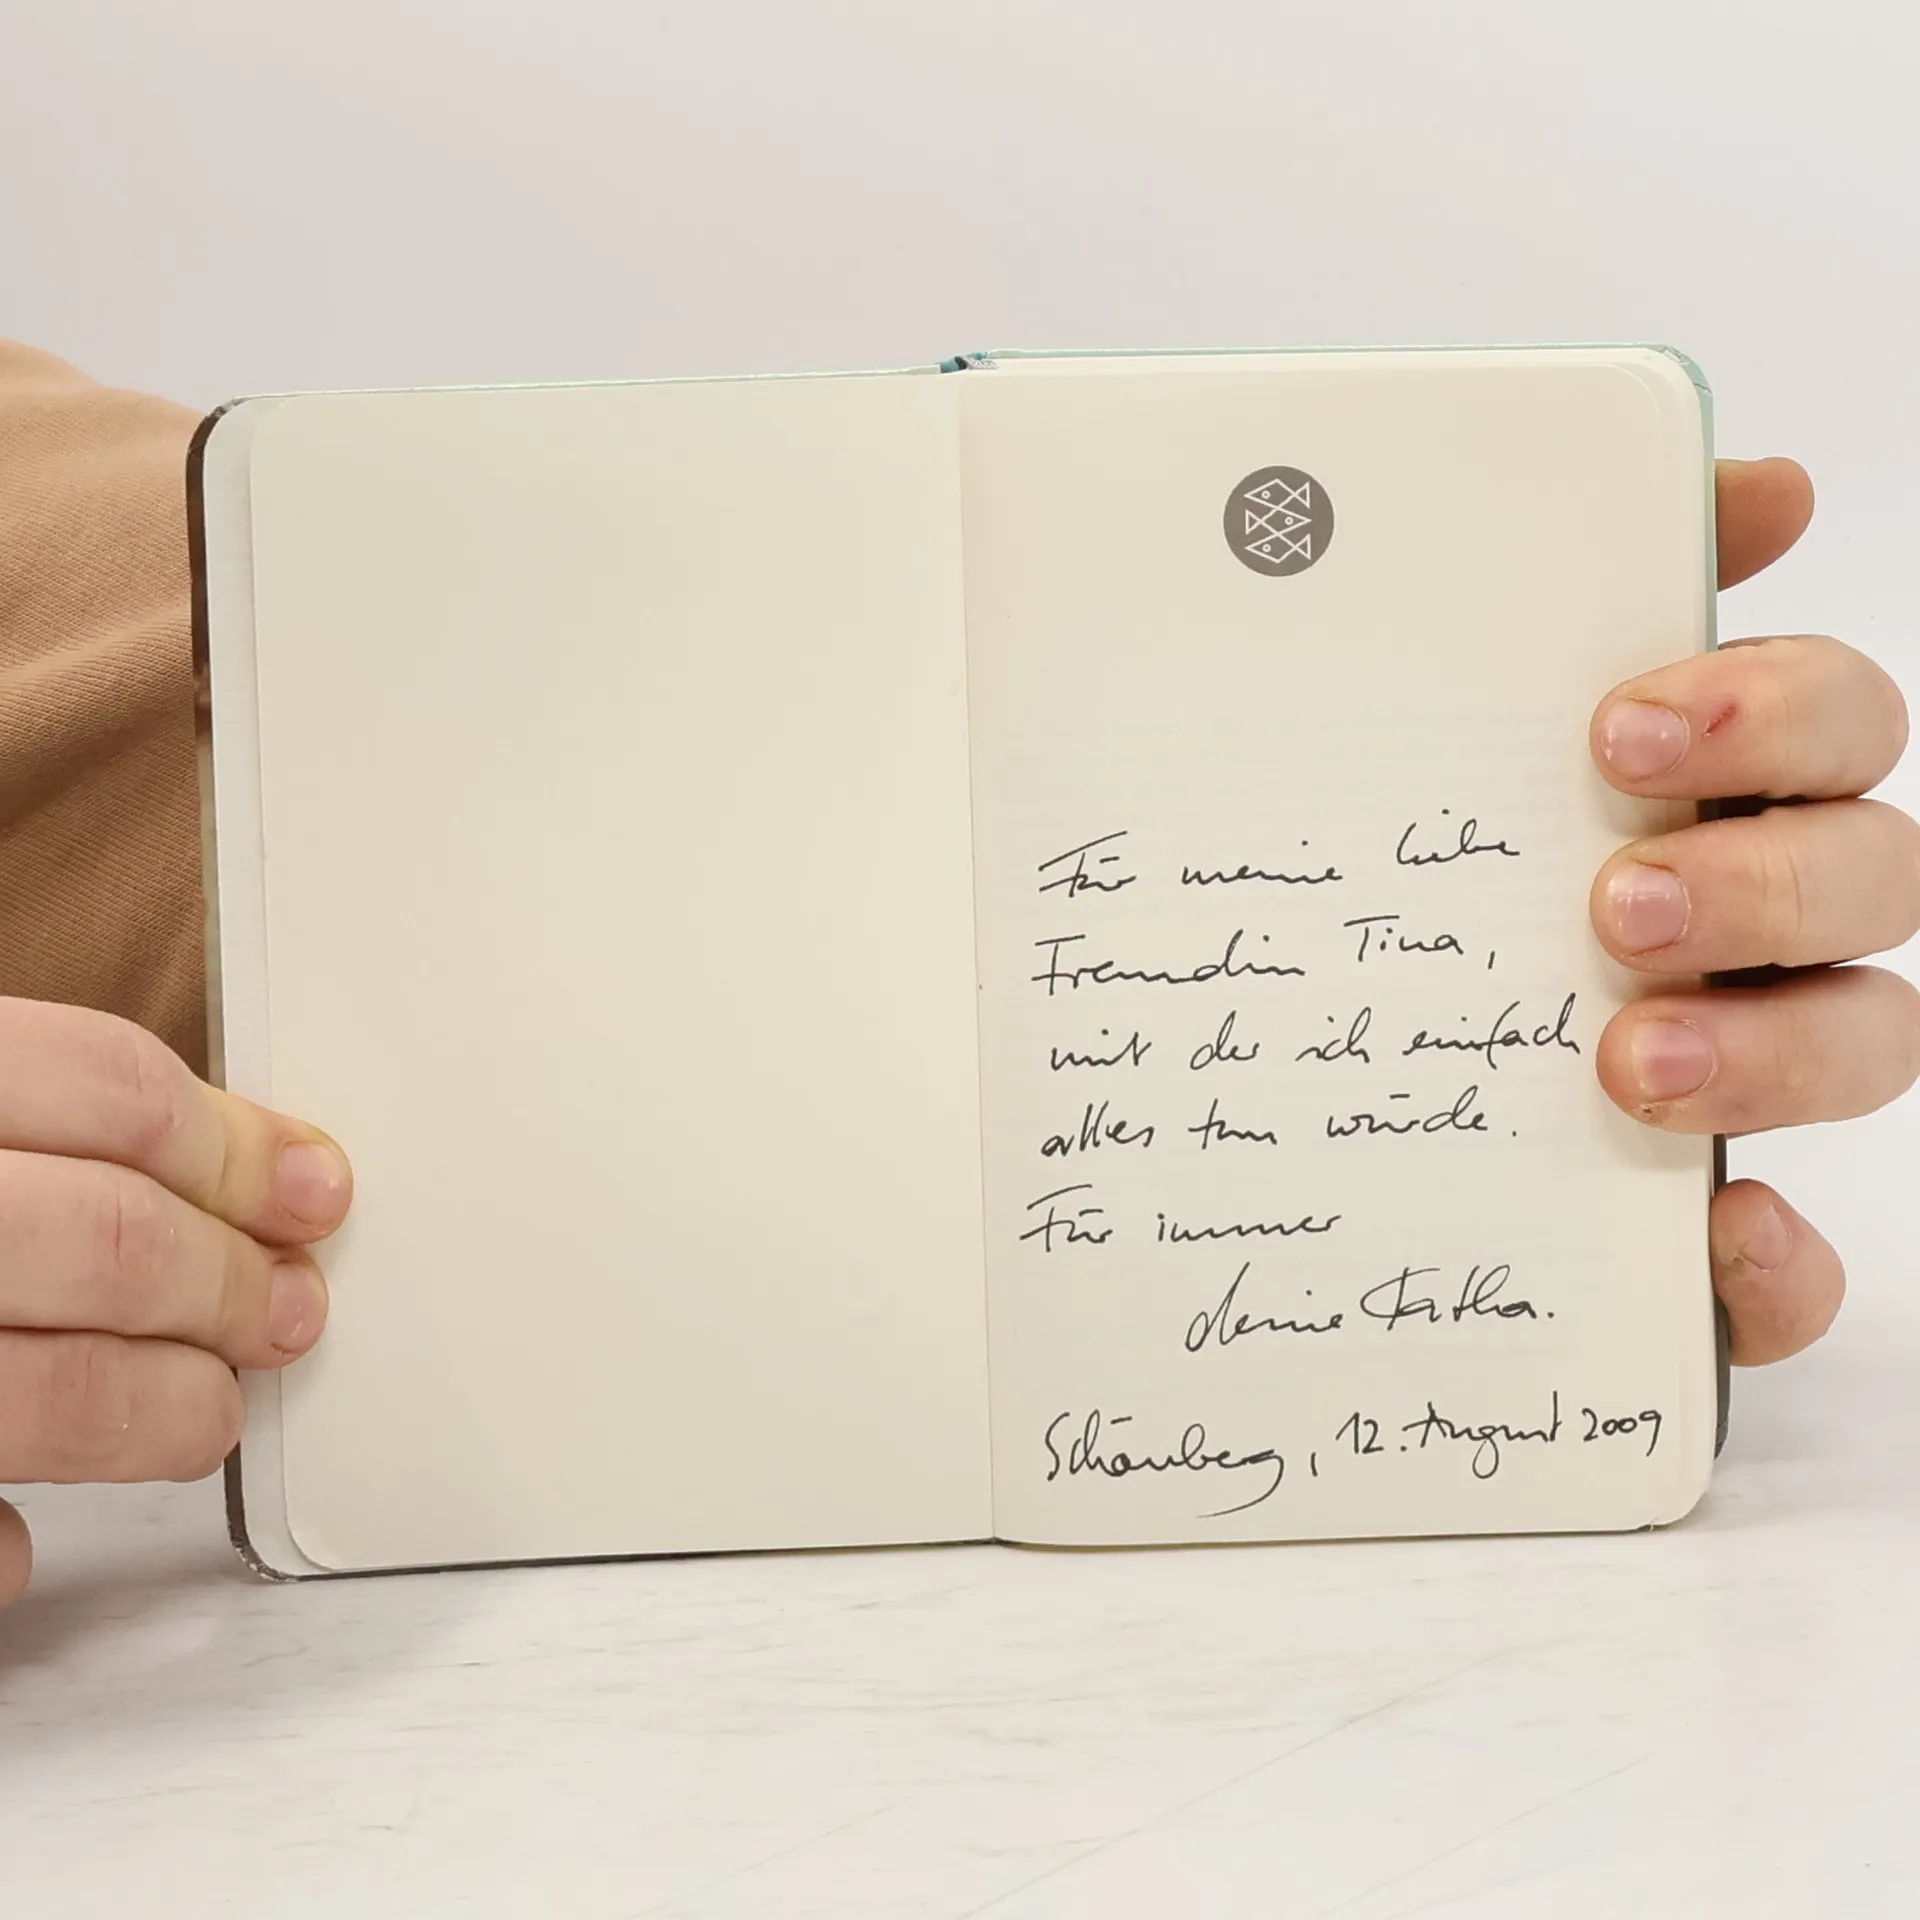 Für meine liebe
Freundin Tina,
mit der ich einfach
alles tun würde.
Für immer
deine Katha.
Schönberg, 12. August 2009